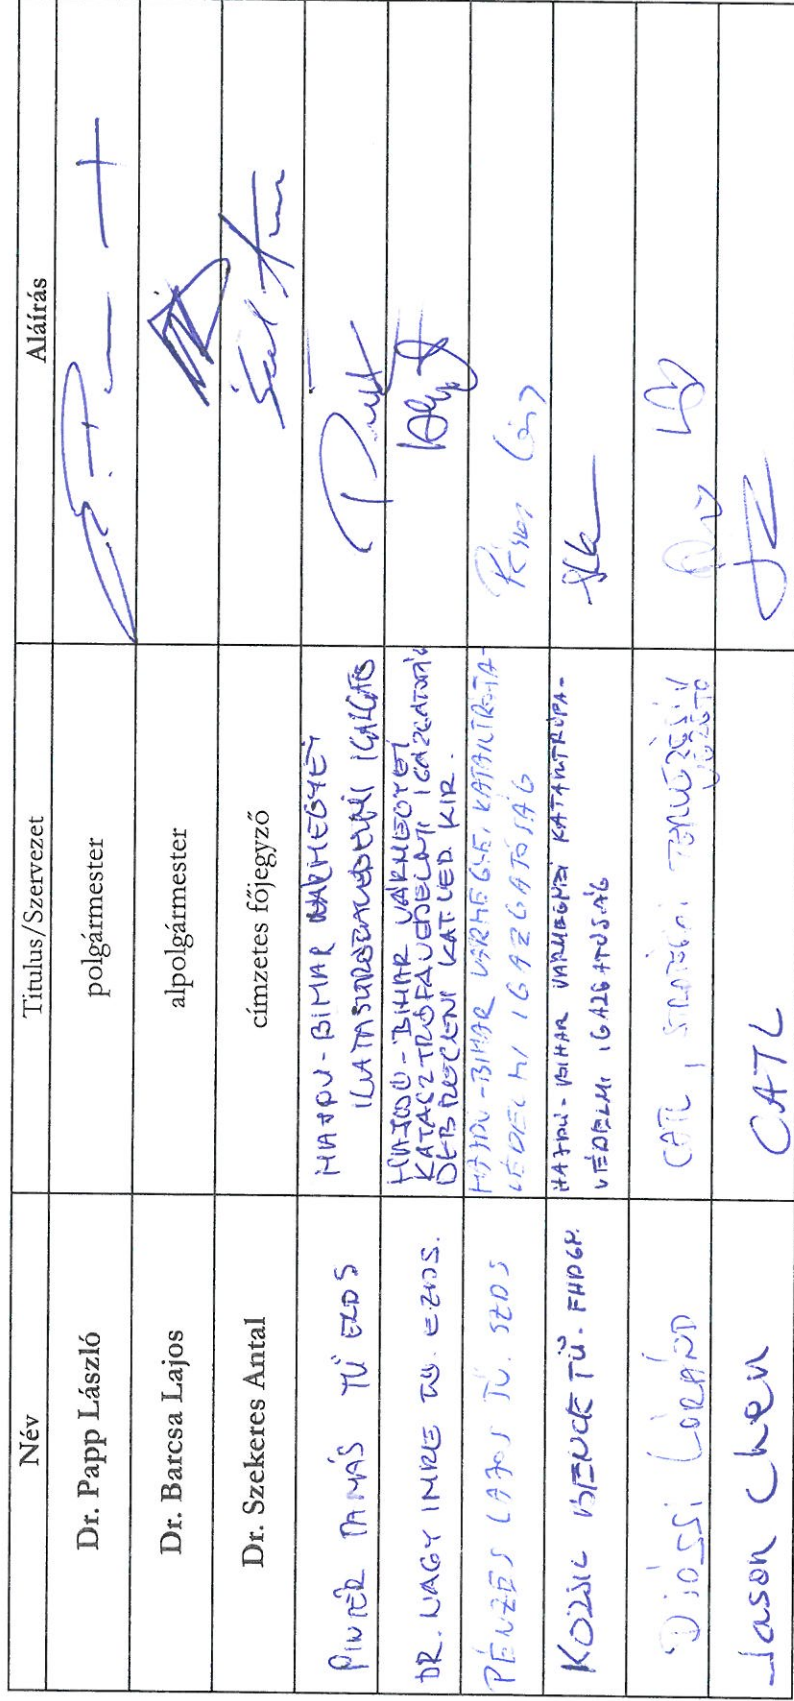 Név Titulus/Szervezet Aláírás
Dr. Papp László polgármester
Dr. Barcsa Lajos alpolgármester
Dr. Szekeres Antal címzetes főjegyző
PINTÉR TAMÁS TŰ EZDS HAJDÚ-BIHAR VÁRMEGYEI
KATASZTRÓFAVÉDELMI IGAZGATÓ
DR. NAGY IMRE TŰ. EZDS. HAJDÚ-BIHAR VÁRMEGYEI
KATASZTRÓFAVÉDELMI IGAZGATÓSÁG
DEBRECENI KAT.VÉD. KIR.
PÉNZES LAJOS TŰ. SZDS HAJDÚ-BIHAR VÁRMEGYEI KATASZTRÓFA-
VÉDELMI IGAZGATÓSÁG
KOZSIL BENCE TŰ. FHDGY. HAJDÚ-BIHAR VÁRMEGYEI KATASZTRÓFA-
VÉDELMI IGAZGATÓSÁG
Diószi LÓRÁND CATL, STRATÉGIAI TERVEZÉSI
VEZETŐ
Jason Chen CATL